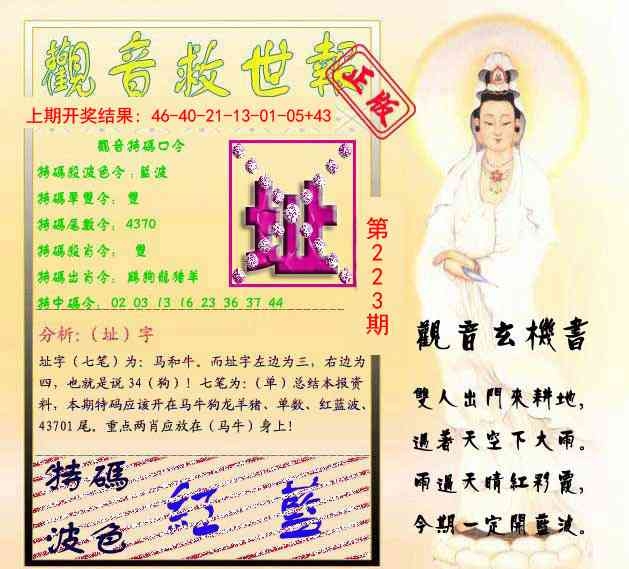 觀音救世報
正版
上期开奖结果：46-40-21-13-01-05+43
觀音特碼口令
特碼殺波色令：藍波
特碼單雙令： 雙
特碼尾數令： 4370
特碼殺肖令： 雙
特碼出肖令： 鷄狗龍猪羊
特中碼令： 02 03 13 16 23 36 37 44
址
第223期
分析:（址）字
址字（七笔）为：马和牛。而址字左边为三，右边为
四，也就是说 34（狗）！七笔为：（单）总结本报资
料，本期特码应该开在马牛狗龙羊猪、单数、红蓝波、
43701 尾。重点两肖应放在（马牛）身上！
特碼
波色
紅 藍
觀音玄機書
雙人出門來耕地，
過著天空下大雨。
雨過天晴紅彩霞，
今期一定開藍波。